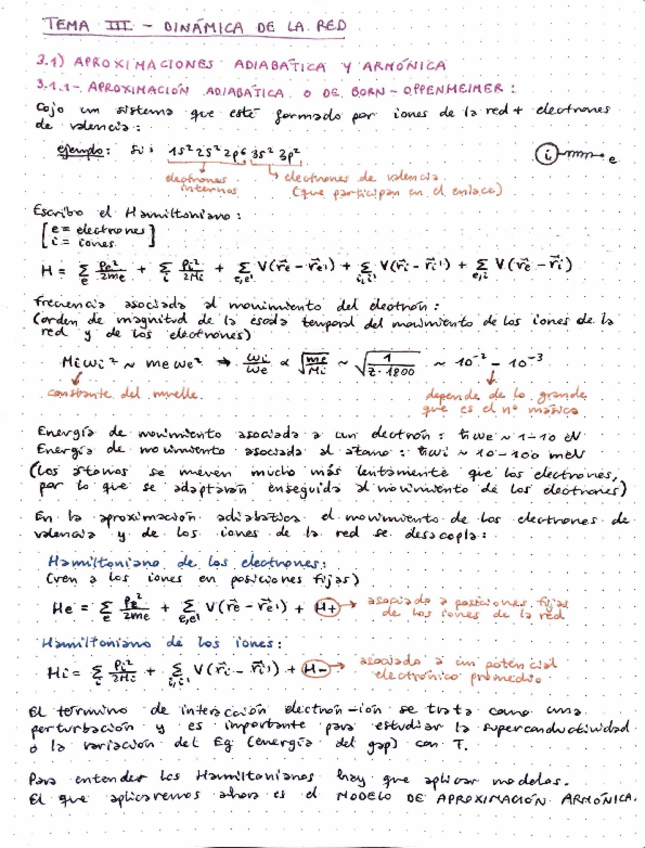 TEMA III. - DINÁMICA DE LA RED
3.1) APROXIMACIONES ADIABÁTICA Y ARMÓNICA
3.1.1- APROXIMACIÓN ADIABÁTICA O DE BORN-OPPENHEIMER:
Cojo un sistema que esté formado por iones de la red + electrones
de valencia:
ejemplo: Si: 1s² 2s² 2p⁶ 3s² 3p²
i e
electrones internos
electrones de valencia (que participan en el enlace)
Escribo el Hamiltoniano:
[e = electrones
i = iones]
H = Σ_e Pe²/2me + Σ_i Pi²/2Mi + Σ_e,e' V(r⃗e - r⃗e') + Σ_i,i' V(r⃗i - r⃗i') + Σ_e,i V(r⃗e - r⃗i)
Frecuencia asociada al movimiento del electrón:
(orden de magnitud de la escala temporal del movimiento de los iones de la
red y de los electrones)
Mi wi² ~ me we² → wi/we ∝ √(me/Mi) ~ √(1/(z·1800)) ~ 10⁻² - 10⁻³
constante del muelle.
depende de lo grande
que es el nº másico
Energía de movimiento asociada a un electrón: ħwe ~ 1-10 eV
Energía de movimiento asociada al átomo: ħwi ~ 10-100 meV
(Los átomos se mueven mucho más lentamente que los electrones,
por lo que se adaptarán enseguida al movimiento de los electrones)
En la aproximación adiabática el movimiento de los electrones de
valencia y de los iones de la red se desacopla:
Hamiltoniano de los electrones:
(ven a los iones en posiciones fijas)
He = Σ_e Pe²/2me + Σ_e,e' V(r⃗e - r⃗e') + H+ → asociado a posiciones fijas
de los iones de la red
Hamiltoniano de los iones:
Hi = Σ_i Pi²/2Mi + Σ_i,i' V(r⃗i - r⃗i') + H- → asociado a un potencial
electrónico promedio
El término de interacción electrón-ión se trata como una
perturbación y es importante para estudiar la superconductividad
o la variación del Eg (energía del gap) con T.
Para entender los Hamiltonianos hay que aplicar modelos.
El que aplicaremos ahora es el MODELO DE APROXIMACIÓN ARMÓNICA.